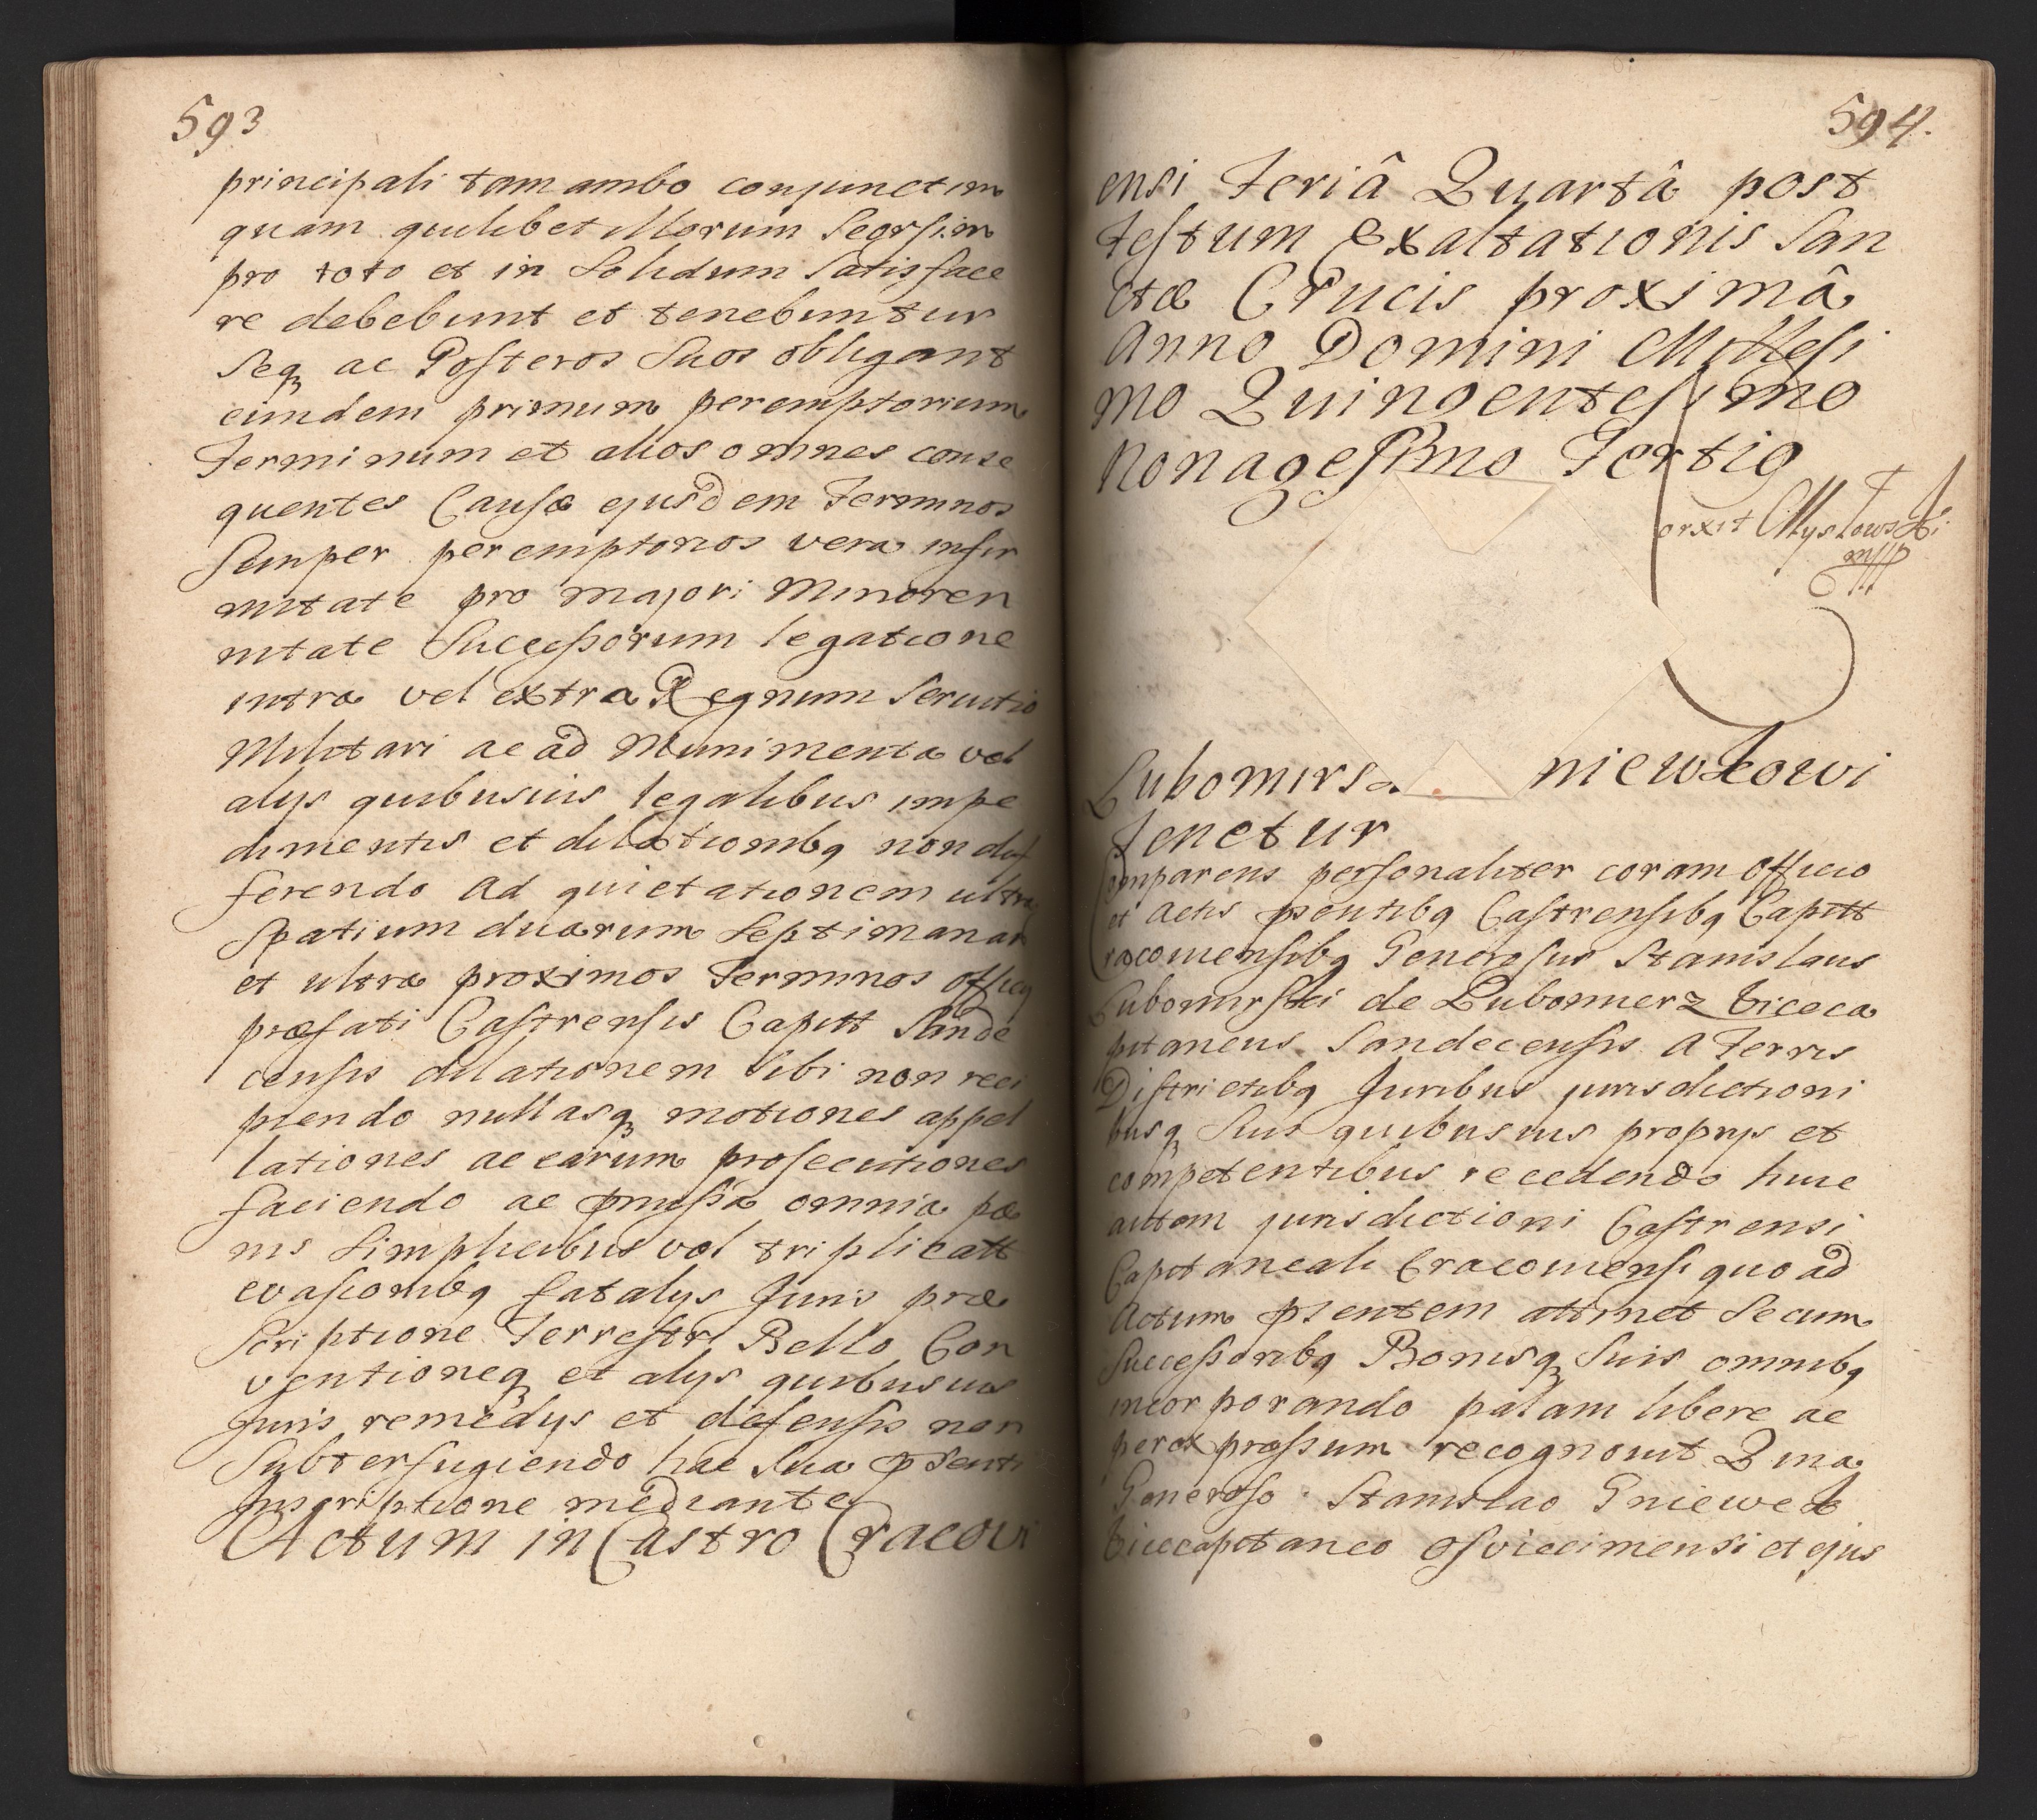 593
principali tam ambo conjunctim
quam quilibet illorum Seorsim
pro toto et in Solidum Satisface
re debebunt et tenebuntur
Seq3 ac Posteros Suos obligant
eundem primum peremptorium
Terminum et alios omnes conse
quentes Causæ ejusdem Terminos
Semper peremptorios vera infir
mitate pro majori Minoren
nitate Successorum legatione
intra vel extra Regnum Servitio
Militari ac ad Munimenta vel
alys quibusvis legalibus impe
dimentis et dilationibq non dif
ferendo ad quietationem ultra
Spatium duarum Septimanar
et ultra proximos Terminos officy
præfati Castrensis Capitt Sande
censis dilationem Sibi non reci
piendo nullasq3 motiones appel
lationes ac earum prosecutiones
faciendo ac pmissa omnia pæ
nis Simplicibus vel triplicatt
evasionibq fatalys Juris præ
Scriptione Terrestri Bello Con
ventioneq3 et alys quibusvis
Juris remedys et defensis non
Subterfugiendo hac Sua psenti
Inscriptione mediante
Actum in Castro Cracovi
594.
ensi Feriâ Quartâ post
Festum Exaltationis San
ctæ Crucis proximâ
Anno Domini Millesi
mo Quingentesimo
Nonagesimo Tertio
Lubomirs niewkowi
Tenetur
Comparens personaliter coram Officio
et Actis psentibq Castrensibq Capitt
Cracoviensibq Generosus Stanislaus
Lubomirski de Lubomierz Viceca
pitaneus Sandecensis A Terris
Districtibq Juribus jurisdictioni
busq3 Suis quibusvis proprys et
competentibus recedendo huic
autem jurisdictioni Castrensi
Capitaneali Cracoviensi quo ad
Actum psentem attinet Secum
Successoribq Bonisq3 Suis omnibq
incorporando palam libere ac
per expressum recognovit Quia
Generoso Stanislao Gniewek
Vicecapitaneo Osviecimensi et ejus